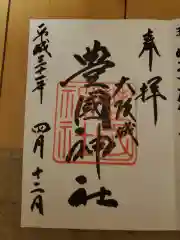 奉拝
大阪城
豊國神社
平成三十一年
四月十二月